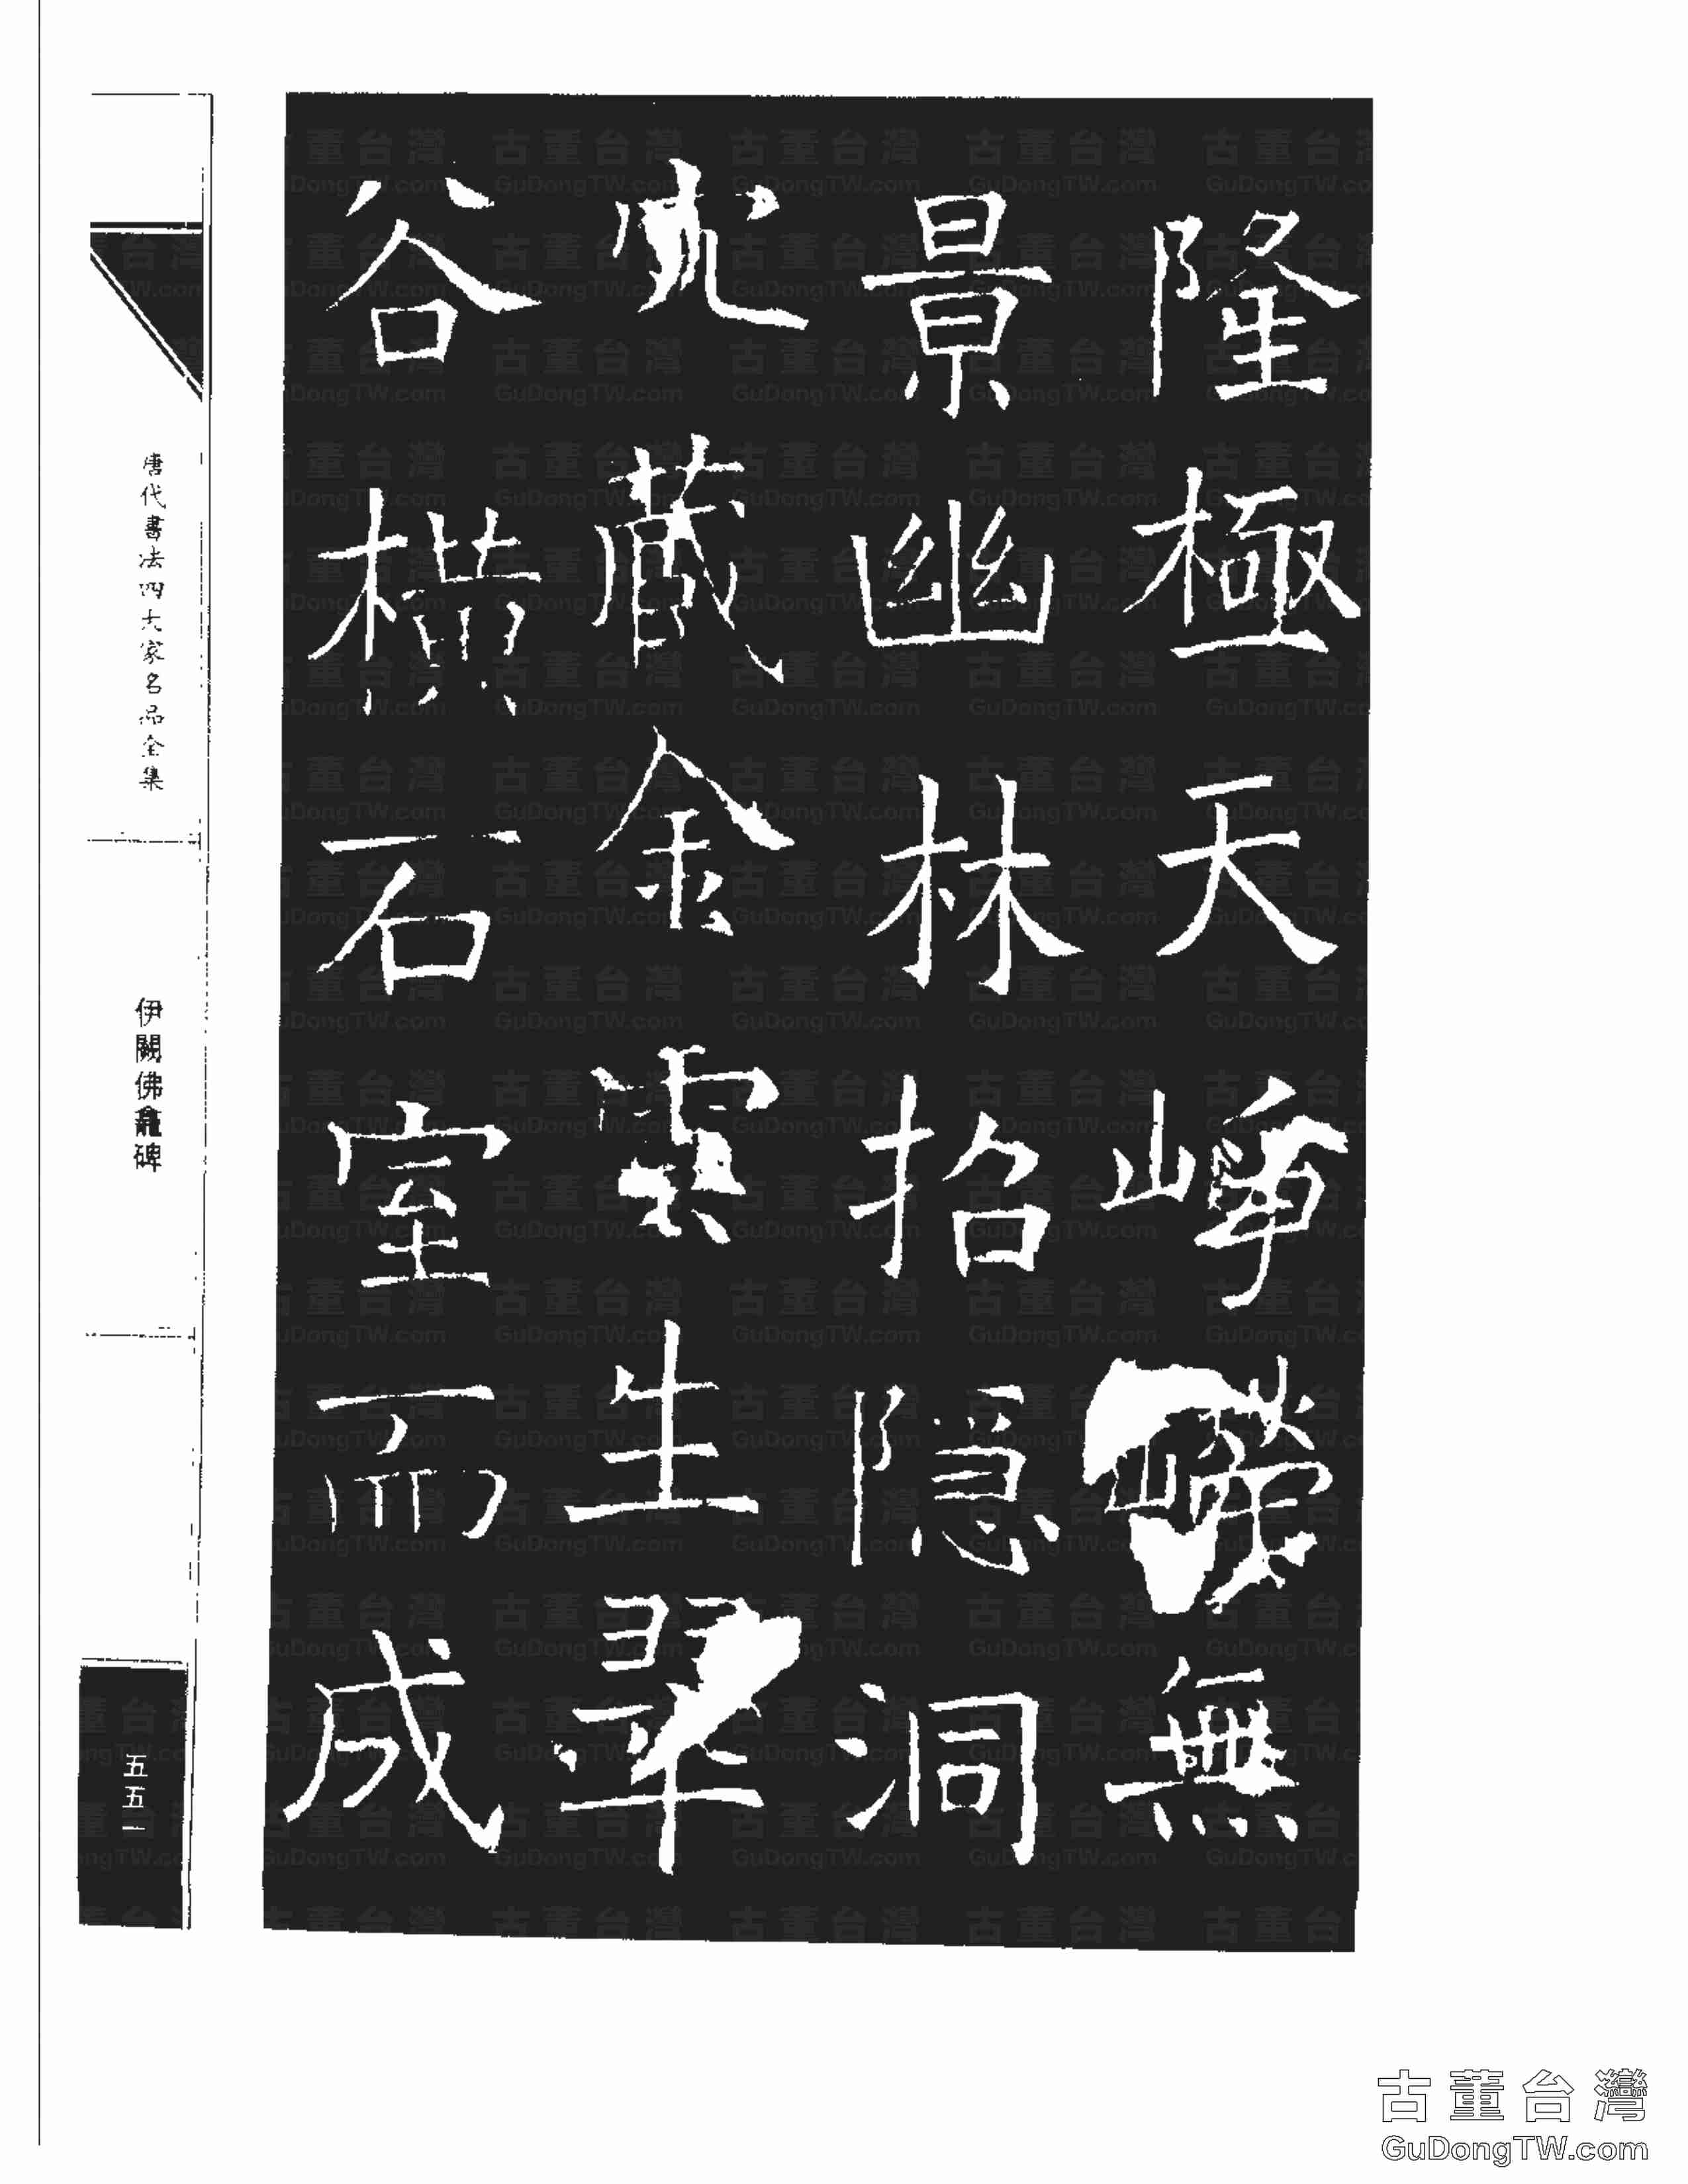 隆極天崢嶸無
景幽林招隱洞
宂藏金雲生翠
谷橫石室而成
唐代書法四大家名品全集
伊闕佛龕碑
五五一
古董台灣
GuDongTW.com